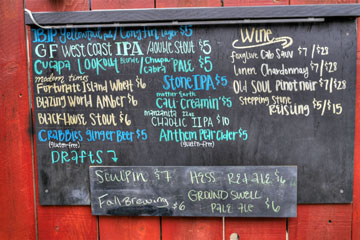 GF West Coast IPA / Mouse Stout $5
Cucapa Lookey Blonde / Chupacabra Pale $5
modern times
Fortunate Island Wheat $6
Blazing World Amber $6
Black House Stout $6
Crabbies Ginger Beer $5
(gluten-free)
Stone IPA $5
mother Earth
Cali Creamin $5
manzanita 22oz
Chaotic IIPA $10
Anthem Pear Cider $5
(gluten-free)
Wine
Foxglove Cab Sauv $7/$28
Liner Chardonnay $7/$28
Old Soul Pinot Noir $7/$28
Stepping Stone
Riesling $5/$15
Drafts
Sculpin $7
Fall-Brewing $6
Hess - Red Ale $6
Ground Swell
Pale Ale $6